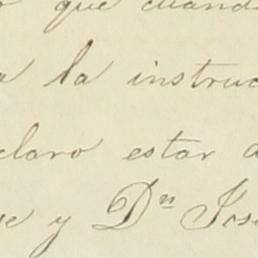 o que cuando
a la instruc
claro estar d
e y Dn José